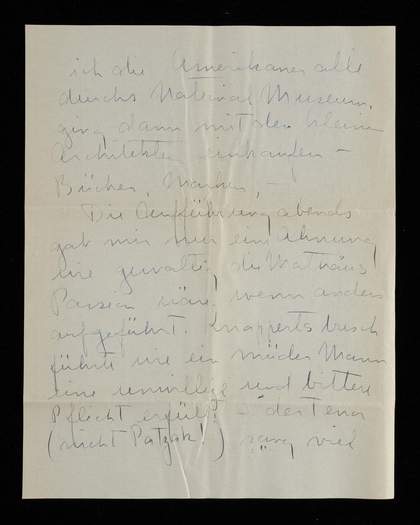 ich die Amerikaner alle
durchs National Museum,
ging dann mit den kleinen
Architekten einkaufen –
Bücher, Marken, –
Die Aufführung abends
gab mir nur eine Ahnung
wie gewaltig die Mathäus
Passion wäre wenn anders
aufgeführt. Knappertsbusch
führte wie ein müder Mann
eine und bittere
Pflicht erfüllt – der Tenor
(nicht Patzak!) sang viel